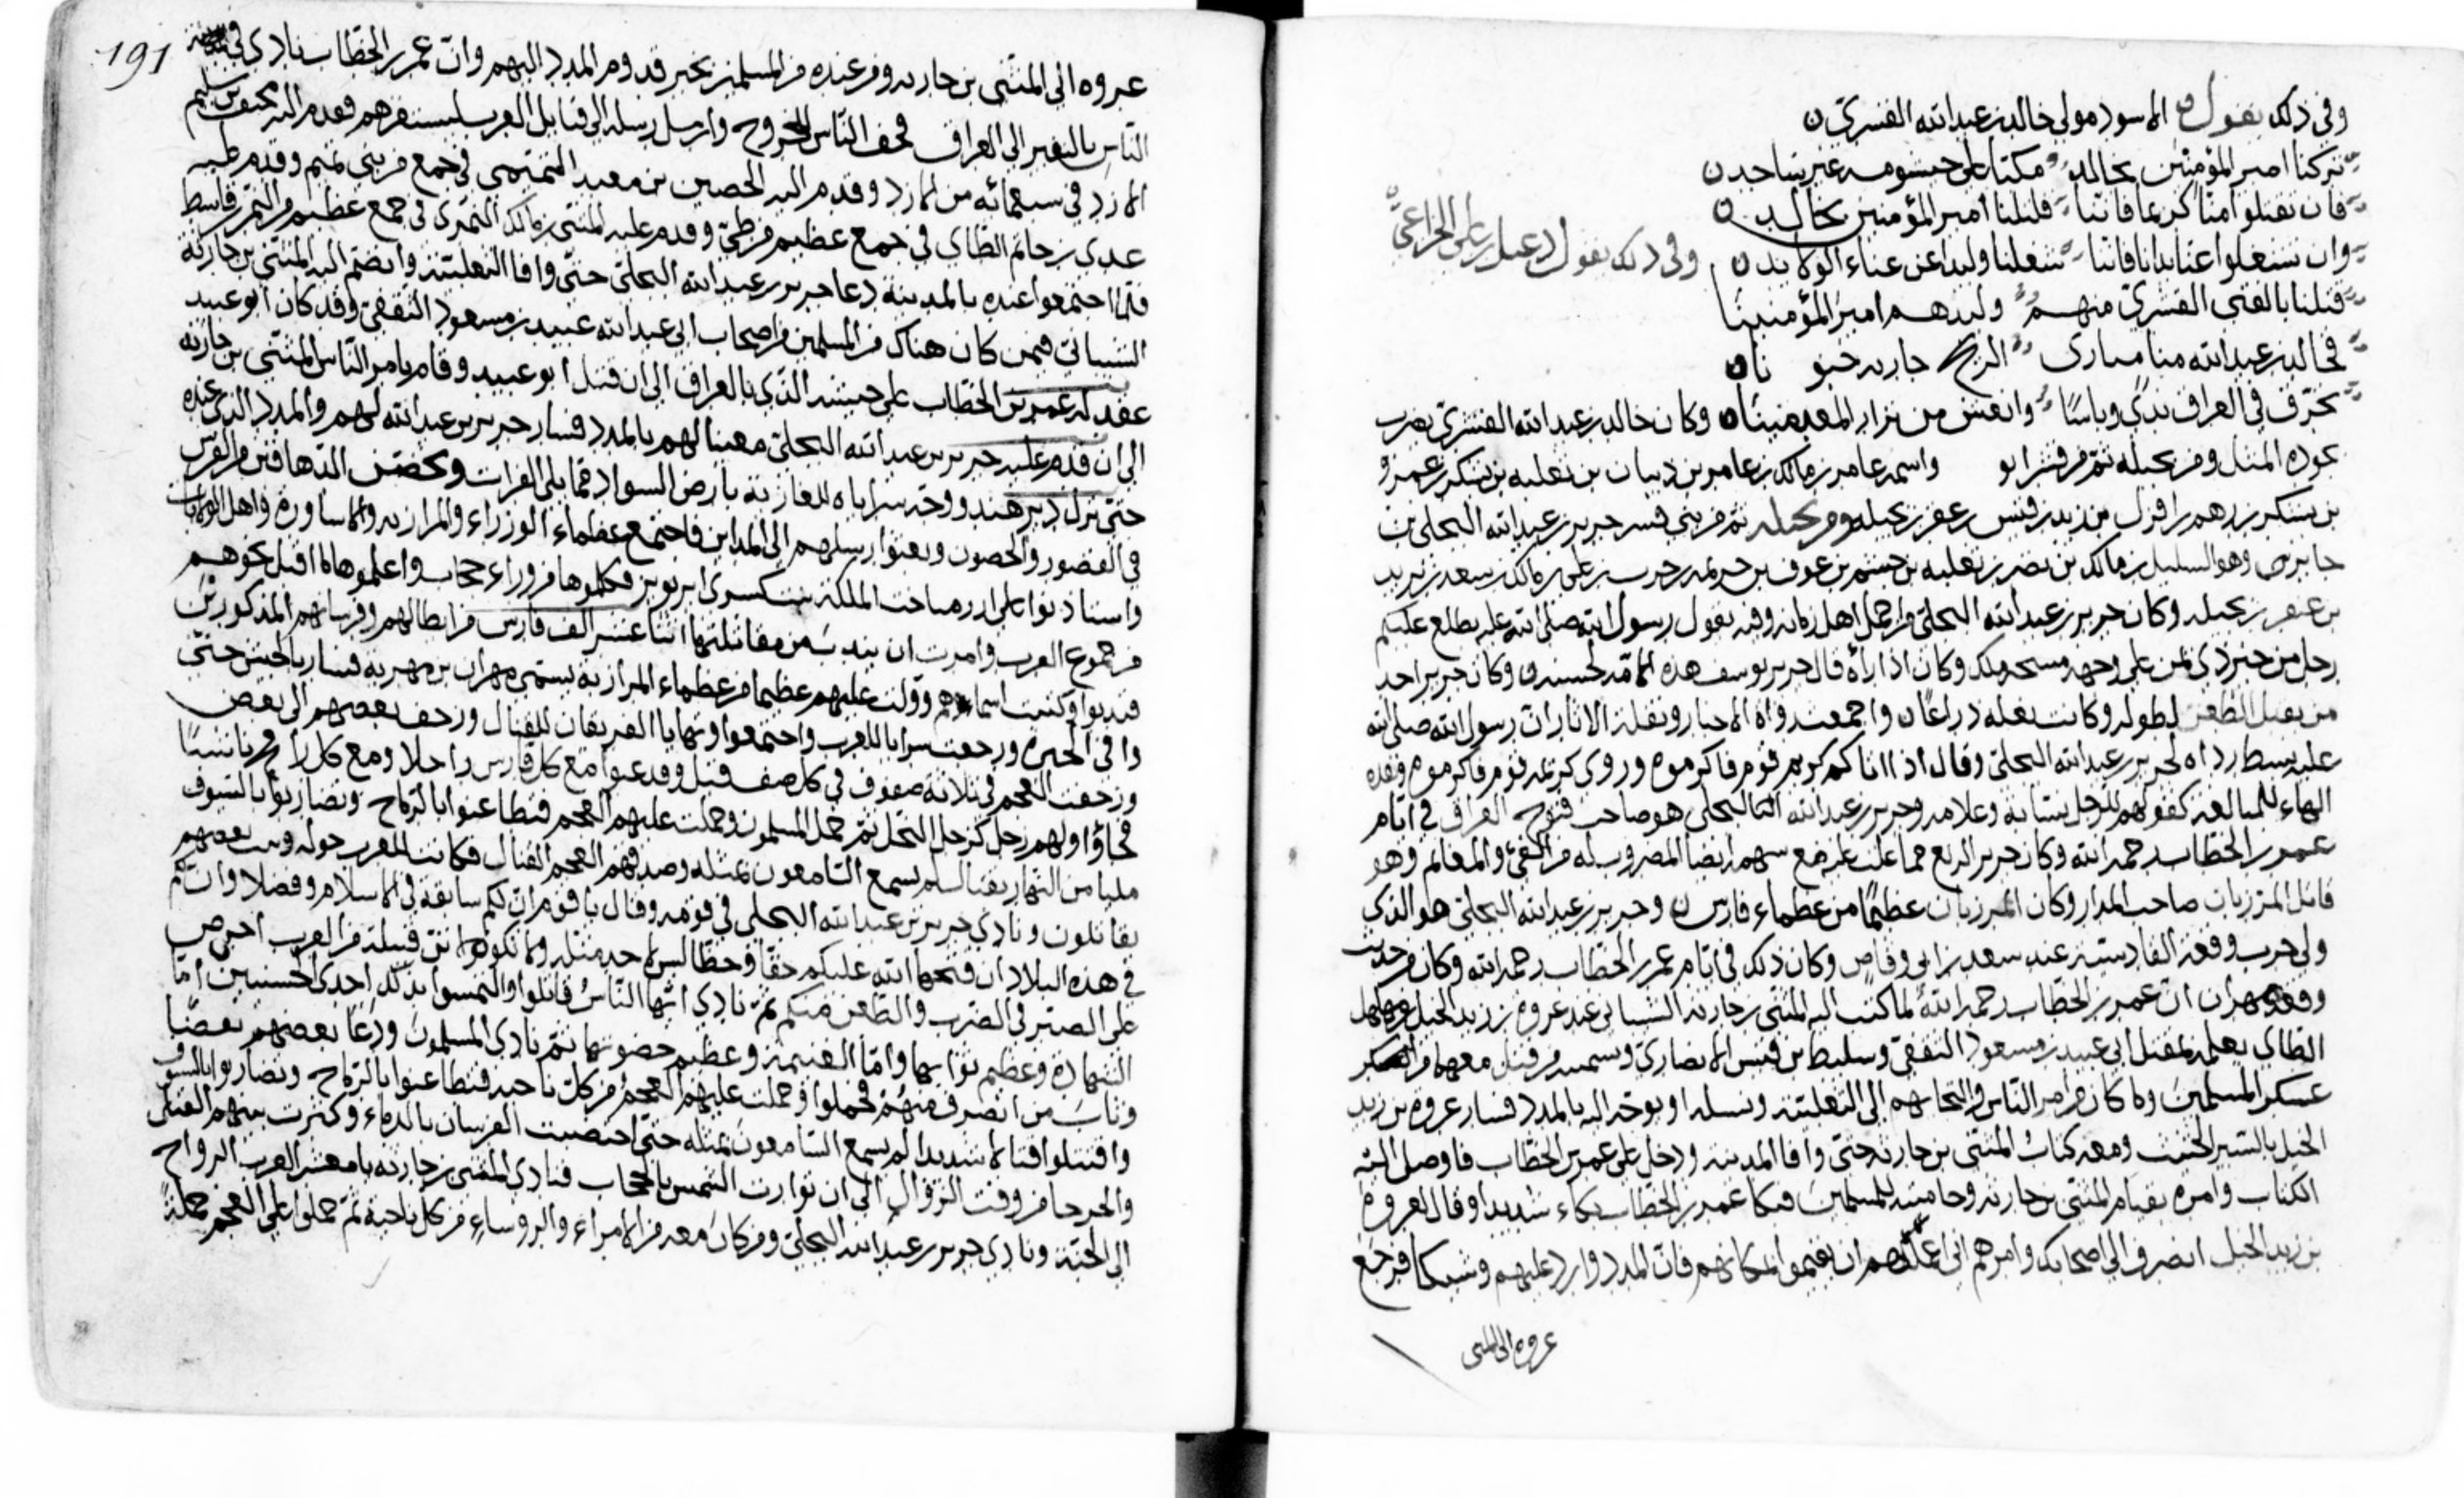 وفي ذلك يقول الاسود مولى خالد بن عبد الله القسري
تركنا امير المؤمنين بخالد مكبا على خيشومه غير ساجد
فان تقتلوا منا كريما فاننا قتلنا أمير المؤمنين بخالد
وان تشغلونا عن اذاننا فاننا شغلنا وليدا عن غناء الولايد وفي ذلك يقول دعبل بن علي الخزاعي
قتلنا بالفتى القسري منهم وليدهم امير المؤمنينا
فخالد بن عبد الله منا مبارى الريح
تخرق في العراق ندى وباسا وانعش من نزار المعدمينا وكان خالد بن عبد الله القسري يضرب
بجوده المثل ومن بجيله ثم من قسر ابو واسمه عامر بن مالك بن عامر بن ذبيان بن ثعلبه بن يشكر بن عمرو
بن يشكر بن رهم بن افرك بن زيد بن قيس بن عبقر بن بجيله ومن بجيله ثم من بني قسر جرير بن عبد الله البجلي بن
جابر وهو السليل بن مالك بن نضر بن ثعلبه بن جشم بن عوف بن حزيمه بن حرب بن علي بن مالك بن سعد بن نزير
بن عبقر بن بجيله وكان جرير بن عبد الله البجلي من اجمل اهل زمانه وفيه يقول رسول الله صلى الله عليه يطلع عليكم
رجل من خير ذي يمن على وجهه مسحه ملك وكان اذا راه قال جرير يوسف هذه الامة لحسنه وكان جرير احد
من يقبل الظعن لطوله وكانت نعله ذراعا واجمعت رواة الاخبار ونقلة الاثار ان رسول الله صلى الله
عليه بسط رداه لجرير بن عبد الله البجلي وقال اذا اتاكم كريم قوم فاكرموه وروى كريمه قوم فاكرموه وهذه
الهاء للمبالغه كقولهم للرجل نسابة وعلامه وجرير بن عبد الله البجلي هو صاحب فتوح العراق في ايام
عمر بن الخطاب رحمه الله وكان جرير الربع مما غلب عليه مع سهم ايضا المضروب له من الفي والمغانم وهو
قاتل المرزبان صاحب المدار وكان المرزبان عظيما من عظماء فارس وجرير بن عبد الله البجلي هو الذي
ولي حرب وقعه القادسية عند سعد بن ابي وقاص وكان ذلك في ايام عمر بن الخطاب رحمه الله وكان من حديث
وقعه مهران ان عمر بن الخطاب رحمه الله لما كتب اليه المثنى بن حارثه الشيباني عند عروه بن زيد الخيل بن مهلهل
الطائي يعلمه بمقتل ابي عبيد بن مسعود الثقفي وسليط بن قيس الانصاري وتسميه من قتل معهما من
عسكر المسلمين وما كان من امر الناس والتجائهم الى الثعلبيه ويسله ان يوجه اليه بالمدد فسار عروه بن زيد
الخيل بالسير الحثيث ومعه كتاب المثنى بن حارثه حتى وافا المدينه ودخل على عمر بن الخطاب فاوصل اليه
الكتاب وامره بقيام المثنى بن حارثه وحاميته للمسلمين فبكا عمر بن الخطاب بكاء شديدا وقال لعروة
بن زيد الخيل انصرف الى اصحابك وامرهم ان يقيموا بمكانهم فان المدد وارد عليهم وشيكا فرجع
عروه الى المثنى
191
عروه الى المثنى بن حارثه ومن عنده من المسلمين بخبر قدوم المدد اليهم وان عمر بن الخطاب نادى في
الناس بالنفير الى العراق فخف الناس للخروج وارسل رسله الى قبايل العرب ليستنفرهم فقدم اليه مخنف بن سليم
الازدي في سبعمائه من الازد وقدم اليه الحصين بن معبد التميمي في جمع من بني تميم وقدم عليه
عدي بن حاتم الطاي في جمع عظيم من طي وقدم عليه المثنى بن مالك النمري في جمع عظيم من النمر بن قاسط
فلما اجتمعوا عنده بالمدينة دعا جرير بن عبد الله البجلي حتى وافا الثعلبية وانضم اليه المثنى بن حارثة
الشيباني فيمن كان هناك من المسلمين من اصحاب ابي عبد الله عبيد بن مسعود الثقفي وقد كان ابو عبيد
عقد له عمر بن الخطاب على جيشه الذي بالعراق الى ان قتل ابو عبيد وقام بامر الناس المثنى بن حارثه
الى ان قدم عليه جرير بن عبد الله البجلي معينا لهم بالمدد فسار جرير بن عبد الله بهم والمدد الذي عنده
حتى نزل دير هند ووجه سراياه للغارة بارض السواد مما يلي الفرات وتحصن الدهاقين من الفرس
في القصور والحصون وبعثوا رسلهم الى المداين فاجتمع عظماء الوزراء والمرازبه والاساورة واهل الولايات
واستاذنوا على ازرميدخت الملكة بنت كسرى ابرويز فكلموها من وراء حجاب واعلموها ما اقبل نحوهم
من جموع العرب وامرت ان يندب من مقاتلتها اثنا عشر الف فارس من ابطالهم وفرسانهم المذكورين
فندبوا وكتبت اسماءهم وولت عليهم عظيما من عظماء المرازبة يسمى مهران بن مهربه فسار بالجيش حتى
وافى الحيره ورجعت سرايا للعرب واجتمعوا وتهايا الفريقان للقتال وزحف بعضهم الى بعض
وزحفت العجم في ثلاثة صفوف في كل صف فيل وقد عبوا مع كل فارس راجلا ومع كل رامح ناشبا
فجاؤا ولهم زجل كزجل النحل ثم حمل المسلمون وحملت عليهم العجم فتطاعنوا بالرماح وتضاربوا بالسيوف
مليا من النهار بقتال لم يسمع السامعون بمثله وصدقهم العجم القتال فكانت للعرب جوله وثبت بعضهم
يقاتلون ونادى جرير بن عبد الله البجلي في قومه وقال يا قوم ان لكم سابقة في الاسلام وفضلا وان لكم
في هذه البلاد ان فتحها الله عليكم حقا وحظا ليس لاحد مثله ولا تكونوا قبيلة من العرب احرص
على الصبر في الضرب والطعن منكم ثم نادى ايها الناس قاتلوا والتمسوا بذلك احدى الحسنيين اما
الشهادة وعظيم ثوابها واما الغنيمة وعظيم حضوتها ثم نادى المسلمون ودعا بعضهم بعضا
وثاب من انصرف منهم فحملوا وحملت عليهم العجم من كل ناحية فتطاعنوا بالرماح وتضاربوا بالسيوف
واقتتلوا قتالا شديدا لم يسمع السامعون بمثله حتى اختضبت الفرسان بالدماء وكثرت بينهم القتلى
والجرحا من وقت الزوال الى ان توارت الشمس بالحجاب فنادى المثنى بن حارثه يا معشر العرب الرواح
الى الجنة ونادى جرير بن عبد الله البجلي ومن كان معه من الامراء والروساء من كل ناحية ثم حملوا على العجم حملة